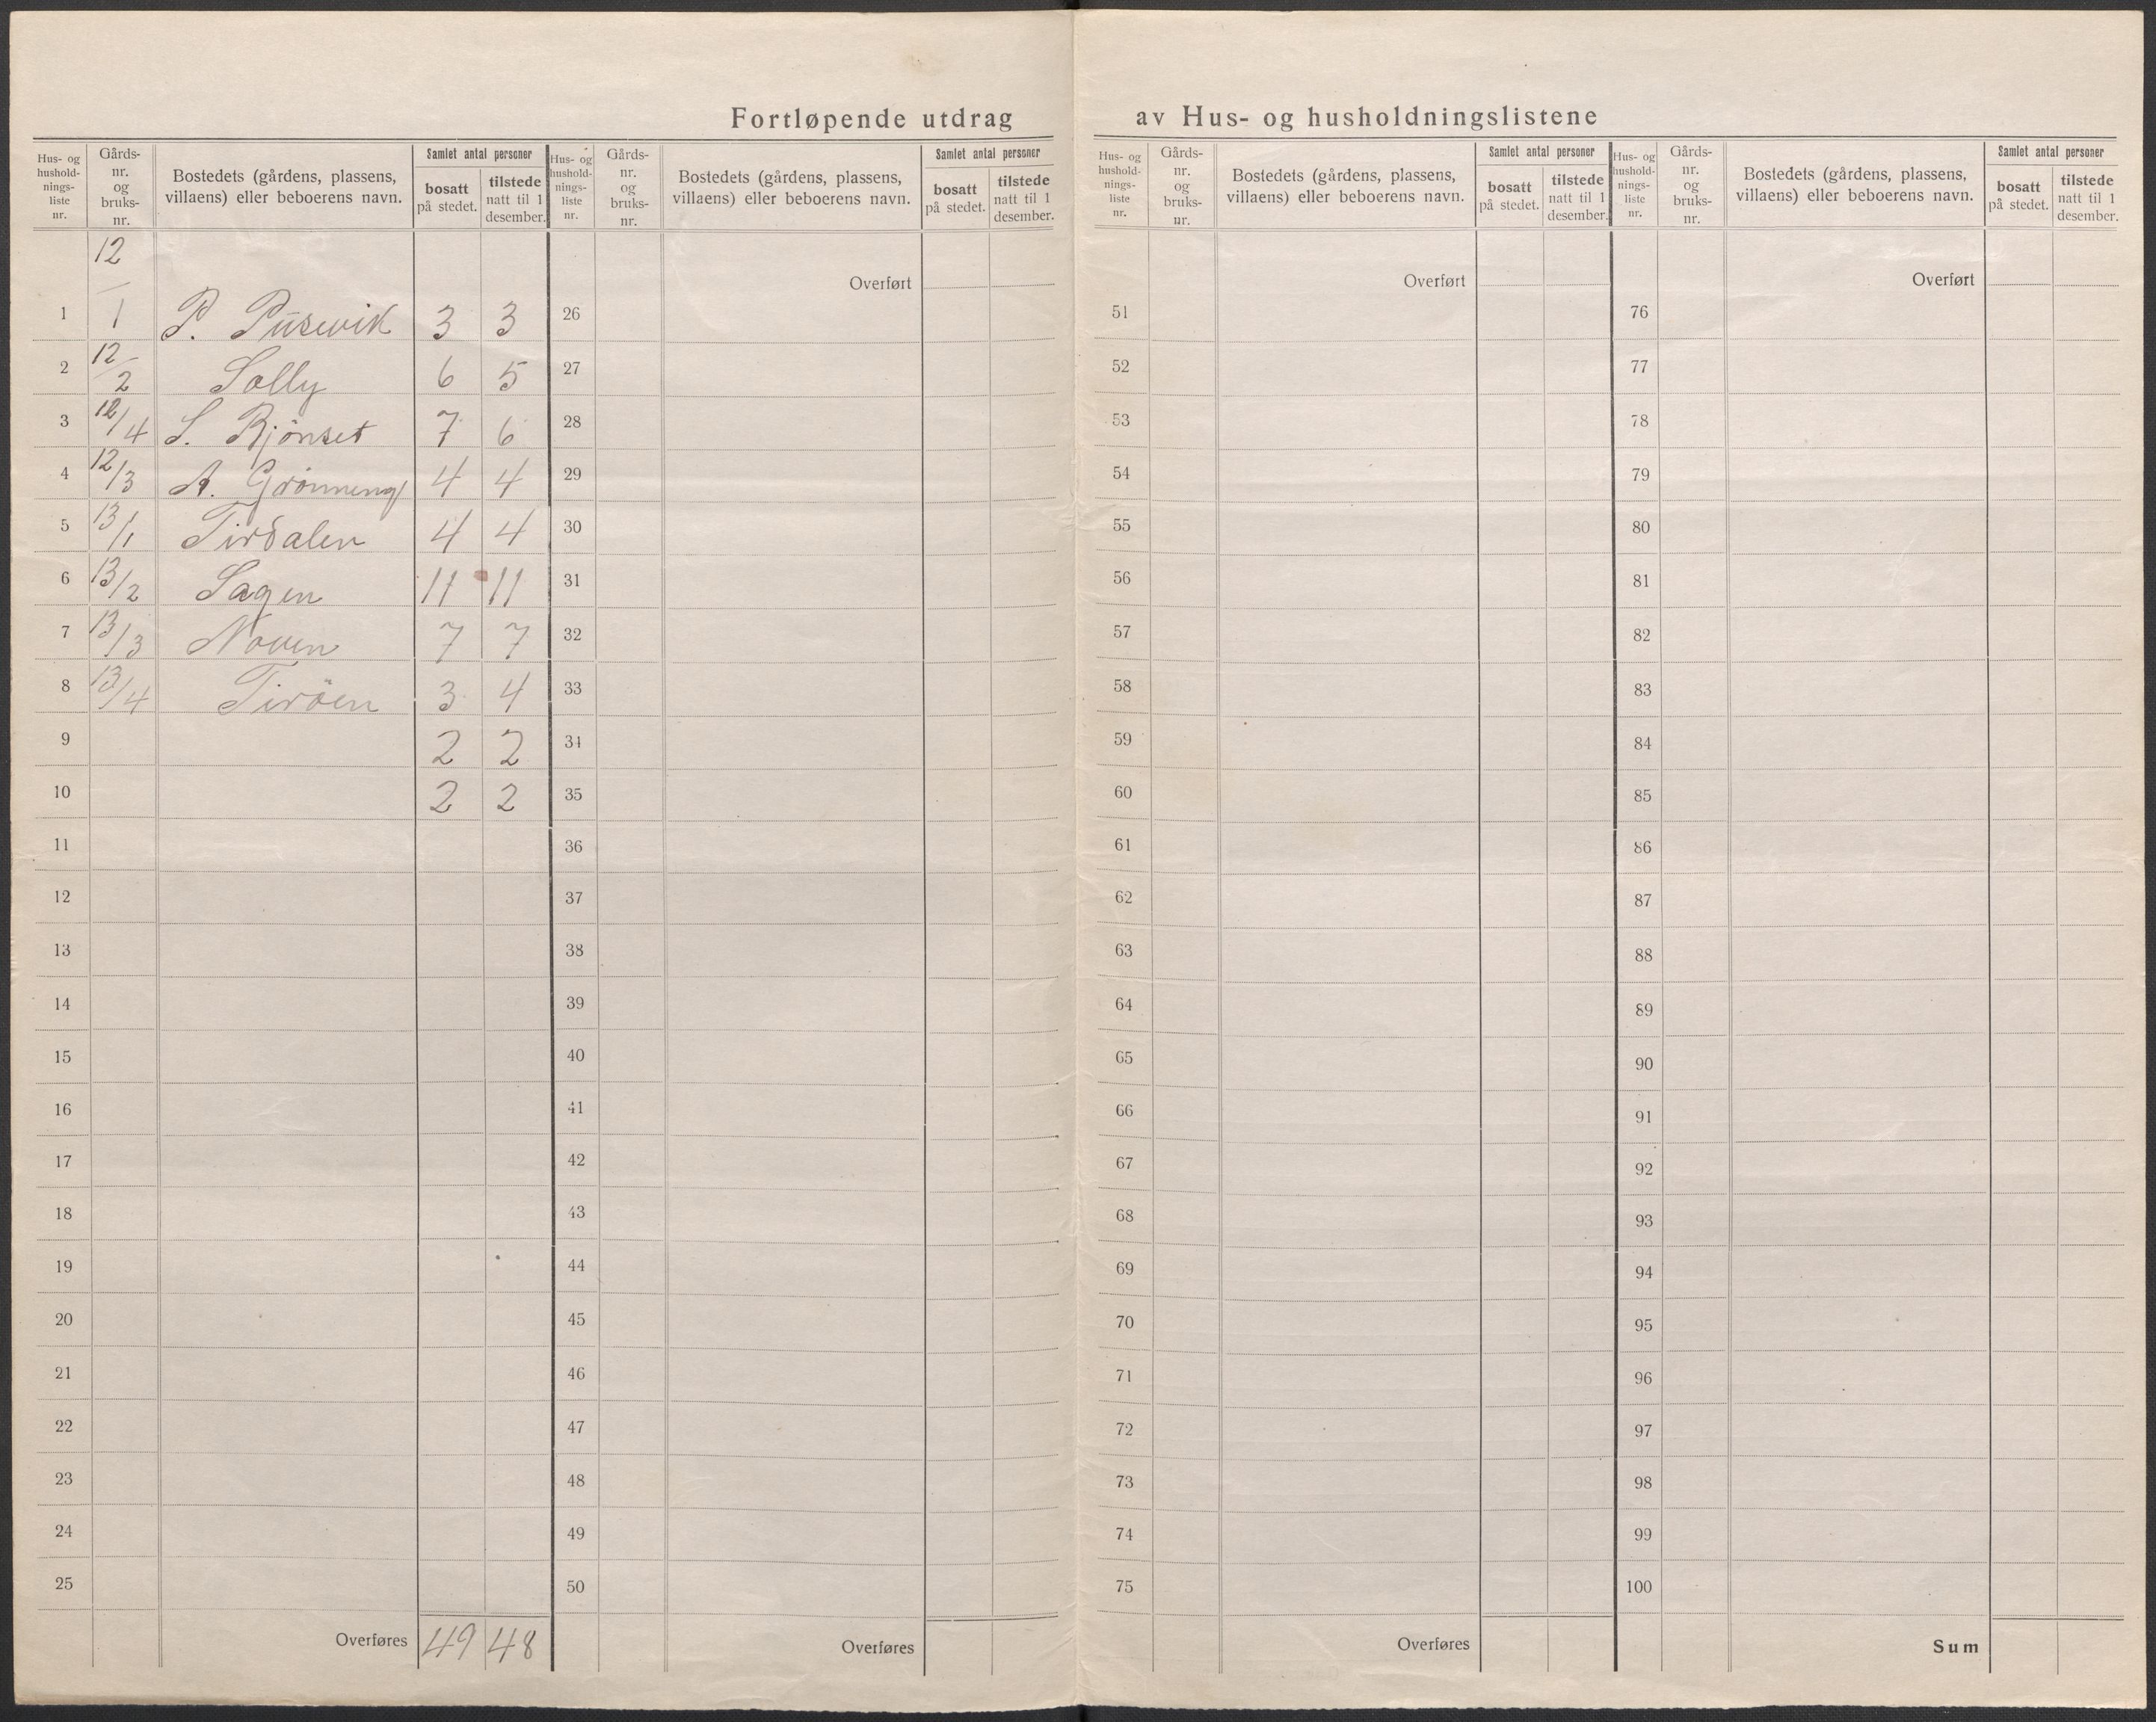 Fortløpende utdrag av Hus- og husholdningslistene
Hus- og hushold-nings-liste nr. Gårds-nr. og bruks-nr. Bostedets (gårdens, plassens, villaens) eller beboerens navn. Samlet antal personer bosatt på stedet. tilstede natt til 1 desember.
12
1 1 P. Pusevik 3 3
2 12/2 Solly 6 5
3 12/4 S. Bjönset 7 6
4 12/3 A. Grönneng 4 4
5 13/1 Tirdalen 4 4
6 13/2 Sagen 11 11
7 13/3 Noven 7 7
8 13/4 Tiröen 3 4
9 2 2
10 2 2
11
12
13
14
15
16
17
18
19
20
21
22
23
24
25
Overføres 49 48
Hus- og hushold-nings-liste nr. Gårds-nr. og bruks-nr. Bostedets (gårdens, plassens, villaens) eller beboerens navn. Samlet antal personer bosatt på stedet. tilstede natt til 1 desember.
Overført
26
27
28
29
30
31
32
33
34
35
36
37
38
39
40
41
42
43
44
45
46
47
48
49
50
Overføres
Hus- og hushold-nings-liste nr. Gårds-nr. og bruks-nr. Bostedets (gårdens, plassens, villaens) eller beboerens navn. Samlet antal personer bosatt på stedet. tilstede natt til 1 desember.
Overført
51
52
53
54
55
56
57
58
59
60
61
62
63
64
65
66
67
68
69
70
71
72
73
74
75
Overføres
Hus- og hushold-nings-liste nr. Gårds-nr. og bruks-nr. Bostedets (gårdens, plassens, villaens) eller beboerens navn. Samlet antal personer bosatt på stedet. tilstede natt til 1 desember.
Overført
76
77
78
79
80
81
82
83
84
85
86
87
88
89
90
91
92
93
94
95
96
97
98
99
100
Sum